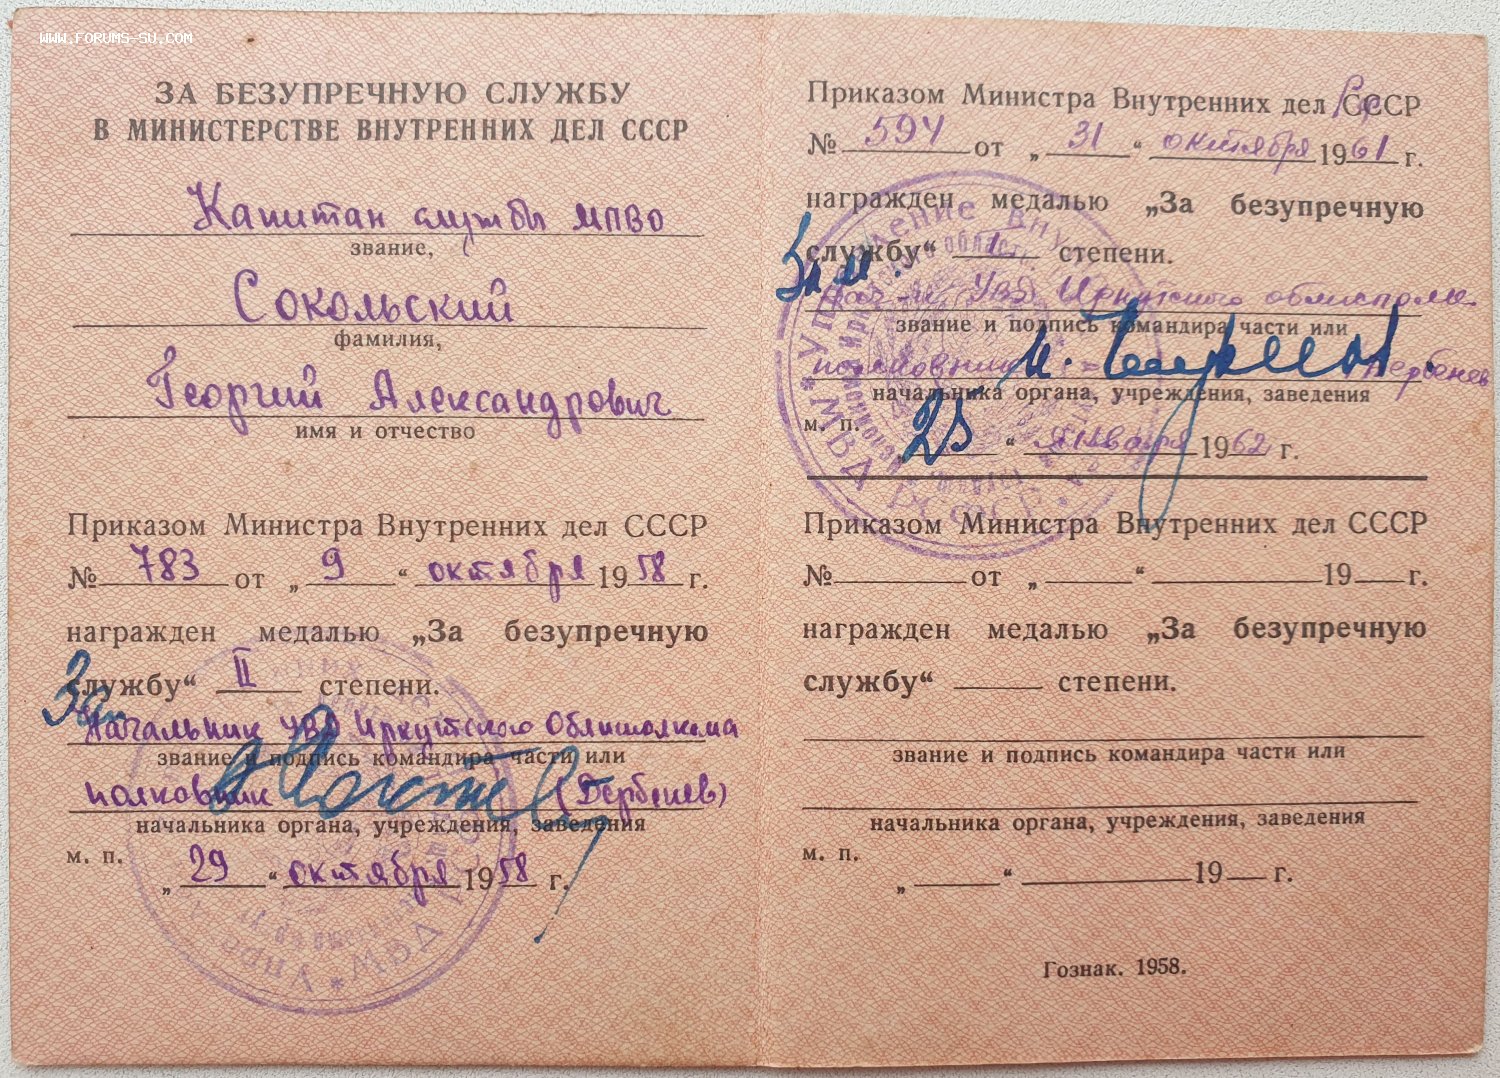 WWW.FORUMS-SU.COM
ЗА БЕЗУПРЕЧНУЮ СЛУЖБУ
В МИНИСТЕРСТВЕ ВНУТРЕННИХ ДЕЛ СССР
Капитан службы МПВО
звание,
Сокольский
фамилия,
Георгий Александрович
имя и отчество
Приказом Министра Внутренних дел СССР
№ 783 от „ 9 “ октября 1958 г.
награжден медалью „За безупречную
службу“ II степени.
Зам
Начальник УВД Иркутского Облисполкома
звание и подпись командира части или
полковник (Дербенев)
начальника органа, учреждения, заведения
м. п.
„ 29 “ октября 1958 г.
Приказом Министра Внутренних дел СССР
№ 594 от „ 31 “ октября 1961 г.
награжден медалью „За безупречную
службу“ I степени.
Зам.
нач-к УВД Иркутского облисполк.
звание и подпись командира части или
полковник
начальника органа, учреждения, заведения
м. п.
25 “ января 1962 г.
Приказом Министра Внутренних дел СССР
№ от „ “ 19 г.
награжден медалью „За безупречную
службу“ степени.
звание и подпись командира части или
начальника органа, учреждения, заведения
м. п.
„ “ 19 г.
Гознак. 1958.